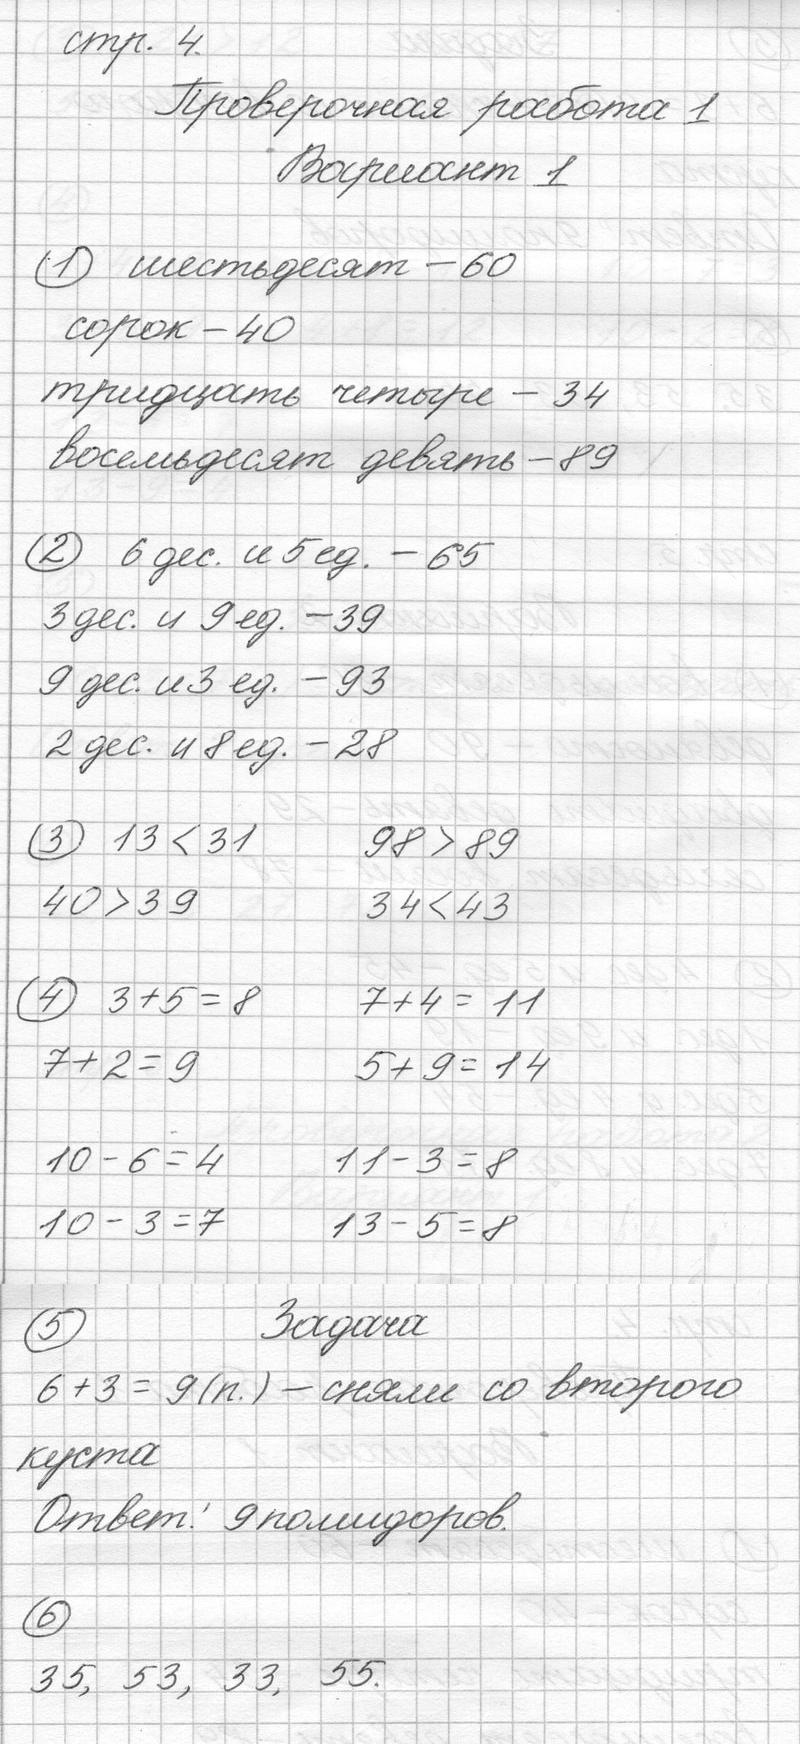 стр. 4.
Проверочная работа 1
Вариант 1
1 шестьдесят – 60
сорок – 40
тридцать четыре – 34
восемьдесят девять – 89
2 6 дес. и 5 ед. – 65
3 дес. и 9 ед. – 39
9 дес. и 3 ед. – 93
2 дес. и 8 ед. – 28
3 13 < 31 98 > 89
40 > 39 34 < 43
4 3 + 5 = 8 7 + 4 = 11
7 + 2 = 9 5 + 9 = 14
10 – 6 = 4 11 – 3 = 8
10 – 3 = 7 13 – 5 = 8
5 Задача
6 + 3 = 9 (п.) – сняли со второго
куста
Ответ: 9 помидоров.
6
35, 53, 33, 55.